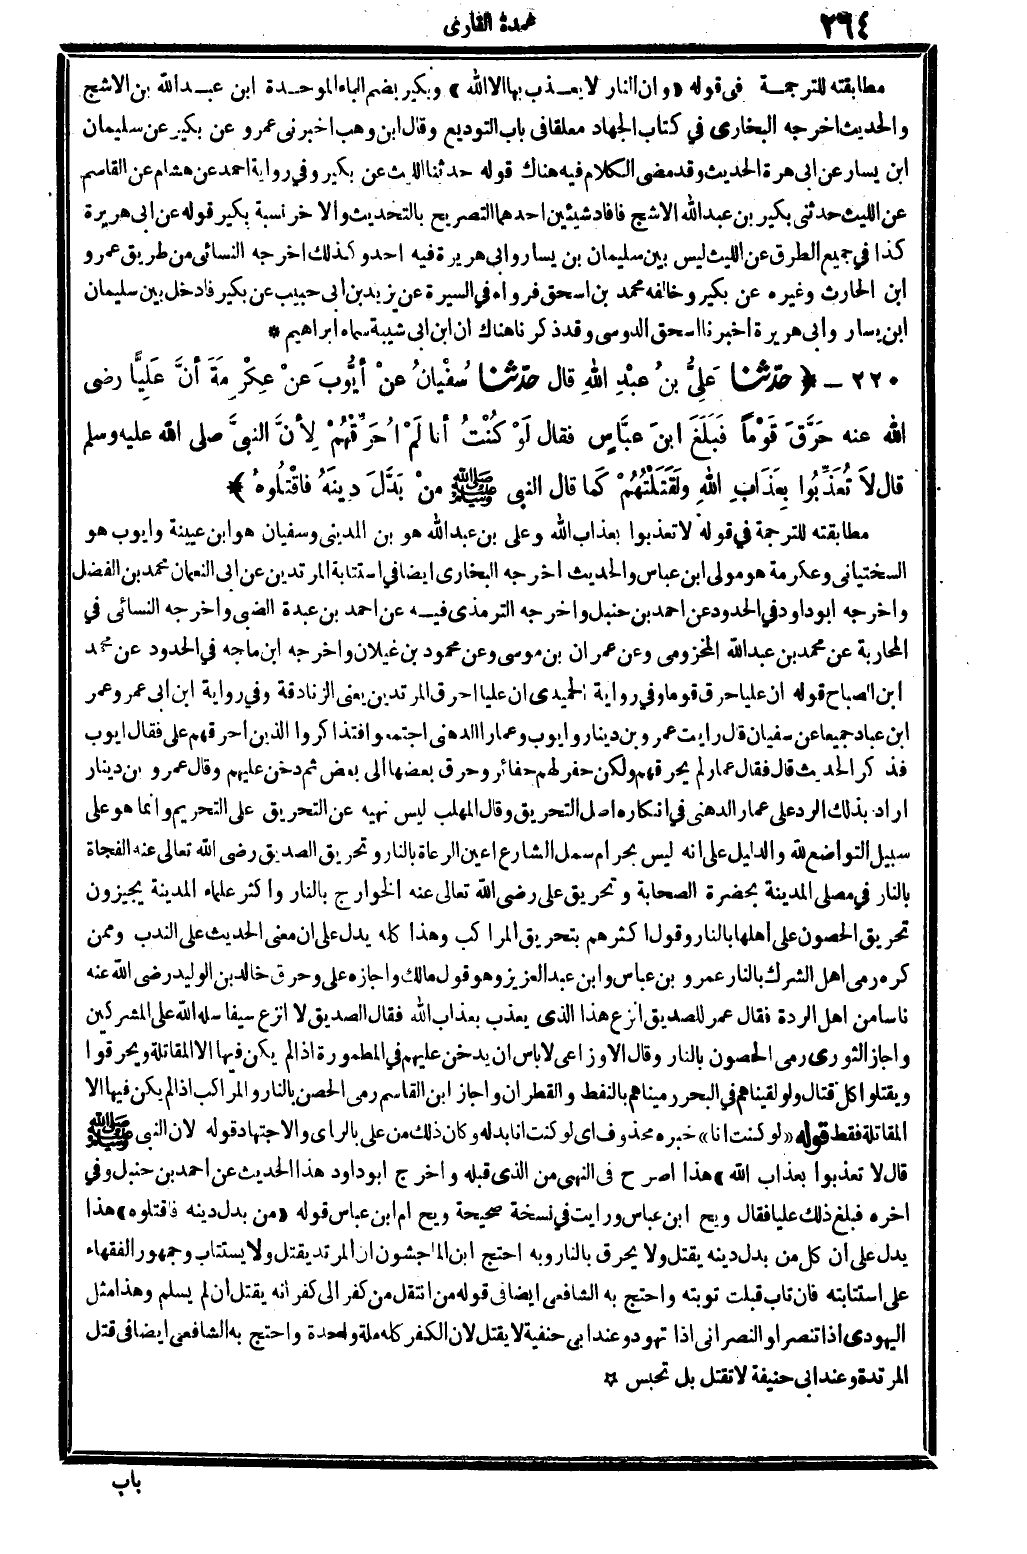 ٢٦٤
عمدة القارى
مطابقته للترجمة فى قوله «وان النار لا يعذب بها الا الله» وبكير بضم الباء الموحدة ابن عبد الله بن الاشج
والحديث اخرجه البخارى في كتاب الجهاد معلقا فى باب التوديع وقال ابن وهب اخبرنى عمرو عن بكير عن سليمان
ابن يسار عن ابى هريرة الحديث وقد مضى الكلام فيه هناك قوله حدثنا الليث عن بكير وفي رواية احمد عن هشام عن القاسم
عن الليث حدثنى بكير بن عبد الله الاشج فافاد شيئين احدهما التصريح بالتحديث والآخر نسبة بكير قوله عن ابى هريرة
كذا في جميع الطرق عن الليث ليس بين سليمان بن يسار وابى هريرة فيه احد وكذلك اخرجه النسائى من طريق عمرو
ابن الحارث وغيره عن بكير وخالفه محمد بن اسحق فرواه في السيرة عن يزيد بن ابى حبيب عن بكير فادخل بين سليمان
ابن يسار وابى هريرة اخبرنا اسحق الدوسى وقد ذكرنا هناك ان ابن ابى شيبة سماه ابراهيم *
٢٢٠ – ﴿ حَدَّثَنَا عَلِيُّ بنُ عبْدِ اللهِ قال حَدَّثَنَا سُفْيانُ عنْ أيُّوبَ عَنْ عِكْرِمَةَ أنَّ عَلِيًّا رضى
الله عنه حَرَّقَ قَوْمًا فَبَلَغَ ابنَ عبَّاسٍ فقال لَوْ كُنْتُ أنا لَمْ اُحَرِّقْهُمْ لِأنَّ النبيَّ صلى الله عليه وسلم
قال لاَ تُعَذِّبُوا بِعَذَابِ اللهِ ولَقَتَلْتُهُمْ كَما قال النبى ﷺ منْ بَدَّلَ دِينَهُ فاقْتُلُوهُ ﴾
مطابقته للترجمة في قوله لا تعذبوا بعذاب الله وعلى بن عبد الله هو بن المدينى وسفيان هو ابن عيينة وايوب هو
السختيانى وعكرمة هو مولى ابن عباس والحديث اخرجه البخارى ايضا في استتابة المرتدين عن ابى النعمان محمد بن الفضل
واخرجه ابو داود في الحدود عن احمد بن حنبل واخرجه الترمذى فيه عن احمد بن عبدة الضبى واخرجه النسائى في
المحاربة عن محمد بن عبد الله المخزومى وعن عمران بن موسى وعن محمود بن غيلان واخرجه ابن ماجه في الحدود عن محمد
ابن الصباح قوله ان عليا حرق قوما وفي رواية الحميدى ان عليا احرق المرتدين يعنى الزنادقة وفي رواية ابن ابى عمر وعمر
ابن عباد جميعا عن سفيان قال رايت عمرو بن دينار وايوب وعمارا الدهنى اجتمعوا فتذاكروا الذين احرقهم على فقال ايوب
فذكر الحديث قال فقال عمار لم يحرقهم ولكن حفر لهم حفائر وحرق بعضها الى بعض ثم دخن عليهم وقال عمرو بن دينار
اراد بذلك الرد على عمار الدهنى في انكاره اصل التحريق وقال المهلب ليس نهيه عن التحريق على التحريم وانما هو على
سبيل التواضع لله والدليل على انه ليس بحرام سمل الشارع اعين الرعاة بالنار وتحريق الصديق رضى الله تعالى عنه الفجاة
بالنار في مصلى المدينة بحضرة الصحابة وتحريق على رضى الله تعالى عنه الخوارج بالنار واكثر علماء المدينة يجيزون
تحريق الحصون على اهلها بالنار وقول اكثرهم بتحريق المراكب وهذا كله يدل على ان معنى الحديث على الندب وممن
كره رمى اهل الشرك بالنار عمرو بن عباس وابن عبد العزيز وهو قول مالك واجازه على وحرق خالد بن الوليد رضى الله عنه
ناسا من اهل الردة فقال عمر للصديق انزع هذا الذى يعذب بعذاب الله فقال الصديق لا انزع سيفا سله الله على المشركين
واجاز الثورى رمى الحصون بالنار وقال الاوزاعى لا باس ان يدخن عليهم في المطمورة اذا لم يكن فيها الا المقاتلة ويحرقوا
ويقتلوا كل قتال ولو لقيناهم في البحر رميناهم بالنفط والقطران واجاز ابن القاسم رمى الحصن بالنار والمراكب اذا لم يكن فيها الا
المقاتلة فقط قوله «لو كنت انا» خبره محذوف اى لو كنت انا بدله وكان ذلك من على بالراى والاجتهاد قوله لان النبى ﷺ
قال لا تعذبوا بعذاب الله» هذا اصرح فى النهى من الذى قبله واخرج ابو داود هذا الحديث عن احمد بن حنبل وفي
اخره فبلغ ذلك عليا فقال ويح ابن عباس ورايت في نسخة صحيحة ويح ام ابن عباس قوله «من بدل دينه فاقتلوه» هذا
يدل على ان كل من بدل دينه يقتل ولا يحرق بالنار وبه احتج ابن الماجشون ان المرتد يقتل ولا يستتاب وجمهور الفقهاء
على استتابته فان تاب قبلت توبته واحتج به الشافعى ايضا فى قوله من انتقل من كفر الى كفر انه يقتل ان لم يسلم وهذا مثل
اليهودى اذا تنصر او النصرانى اذا تهود وعند ابى حنيفة لا يقتل لان الكفر كله ملة واحدة واحتج به الشافعى ايضا فى قتل
المرتدة وعند ابى حنيفة لا تقتل بل تحبس ☆
باب